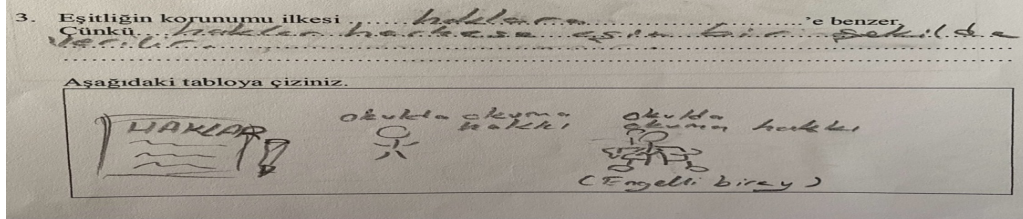 3. Eşitliğin korunumu ilkesi ....haklara....'e benzer.
Çünkü....haklar herkese eşit bir şekilde
verilir.
Aşağıdaki tabloya çiziniz.
HAKLAR
okulda okuma hakkı
okulda okuma hakkı
(Engelli birey)